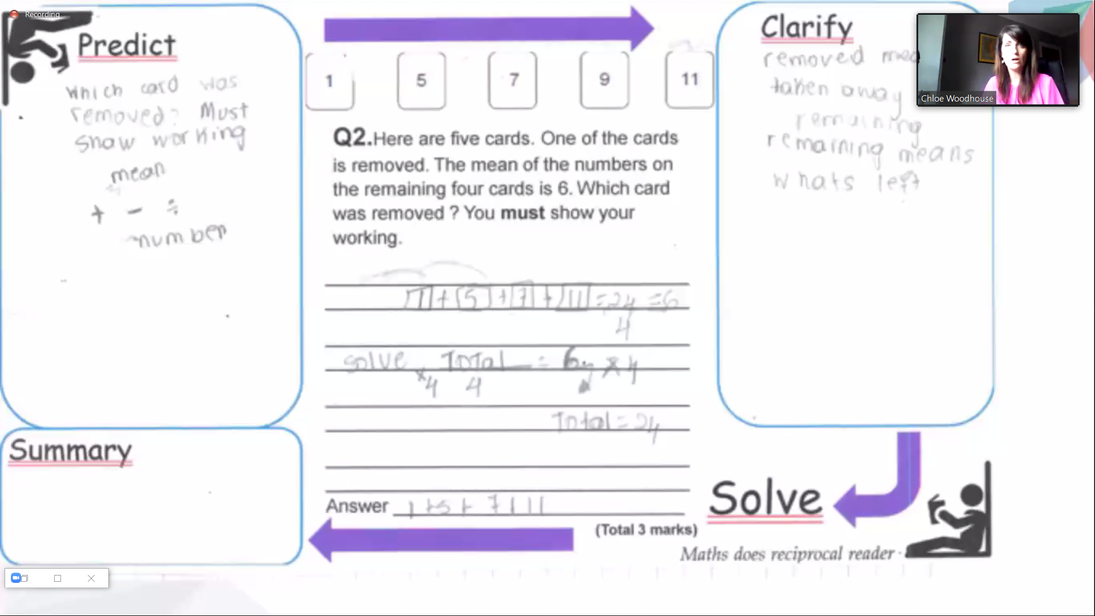 Recording
Predict
which card was
removed? Must
show working
mean
+ - ÷
number
1 5 7 9 11
Q2.Here are five cards. One of the cards
is removed. The mean of the numbers on
the remaining four cards is 6. Which card
was removed ? You must show your
working.
1 + 5 + 7 + 11 = 24 = 6
4
solve Total = 6 × 4
×4 4
Total = 24
Answer 1+5+7+11
(Total 3 marks)
Clarify
removed
taken away
remaining
remaining means
whats left
Chloe Woodhouse
Summary
Solve
Maths does reciprocal reader